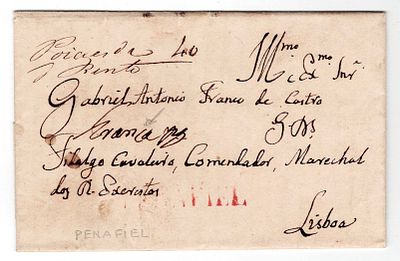 40
Illmo e Exmo Snr
Gabriel Antonio Franco de Castro
G. Ds.
Fidalgo Cavaleiro, Comendador, Marechal
dos R. Exercitos
AFIEL
PENAFIEL
Lisboa